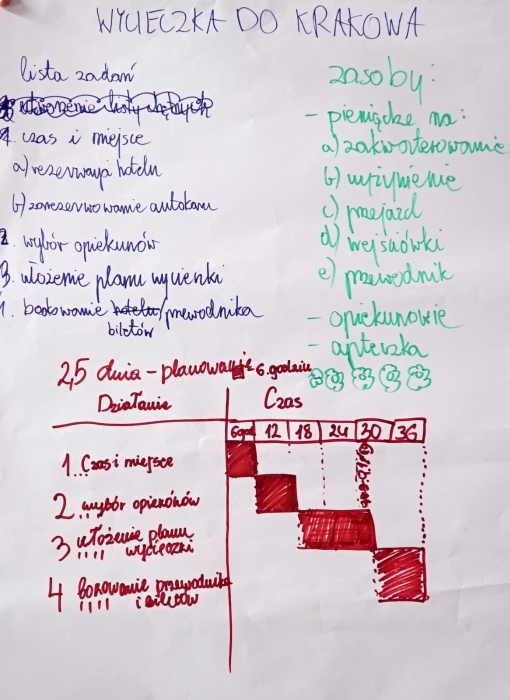 WYCIECZKA DO KRAKOWA
lista zadań
1. czas i miejsce
a) rezerwacja hotelu
b) zarezerwowanie autokaru
2. wybór opiekunów
3. ułożenie planu wycieczki
bookowanie hotelu/przewodnika
biletów
zasoby:
- pieniądze na:
a) zakwaterowanie
b) wyżywienie
c) przejazd
d) wejściówki
e) przewodnik
- opiekunowie
- apteczka
2,5 dnia - planowanie 6. godzin
Działanie Czas
6god 12 18 24 30 36
1. Czas i miejsce
2. wybór opiekunów
3 ułożenie planu
wycieczki
4 bookowanie przewodnika
i biletów